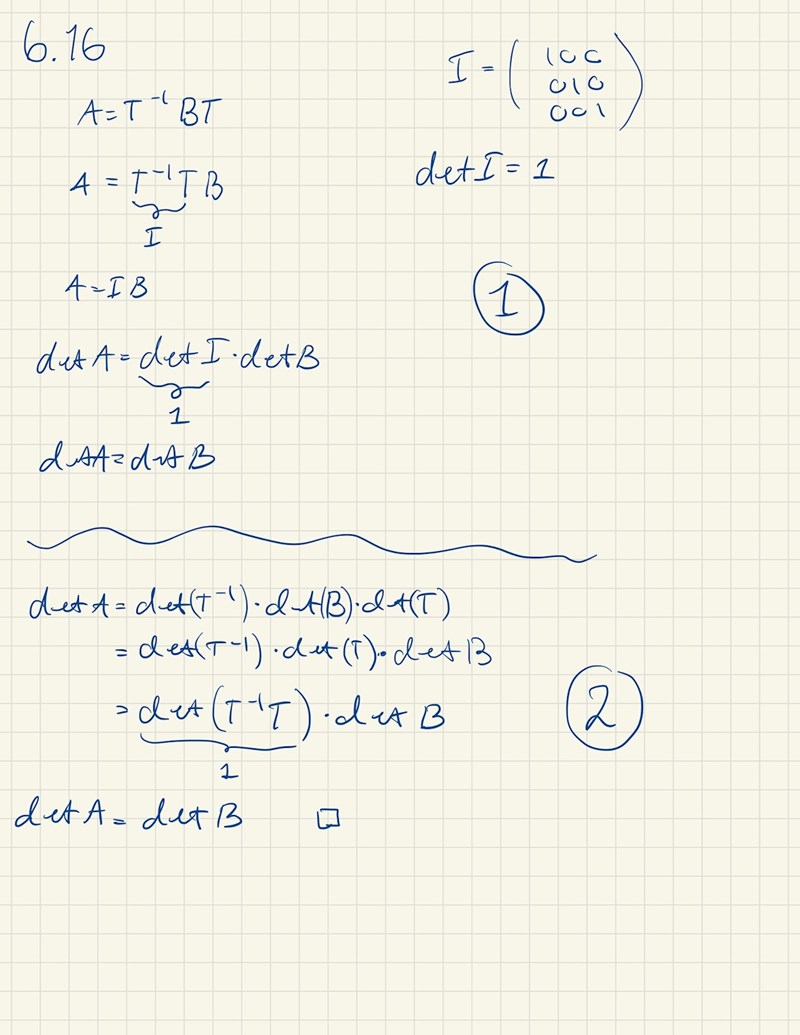 6.16
A = T⁻¹ BT
A = T⁻¹ T B
I
A = I B
det A = det I · det B
1
det A = det B
I = ( 1 0 0
0 1 0
0 0 1 )
det I = 1
1
det A = det(T⁻¹) · det(B) · det(T)
= det(T⁻¹) · det(T) · det B
= det(T⁻¹T) · det B
1
2
det A = det B □